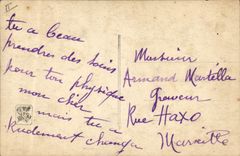 tu a beau
prendres des soins
pour ton physique
mon cher
mais tu a
Rudement changer
Monsieur
Armand Martella
Graveur
Rue Haxo
Marseille